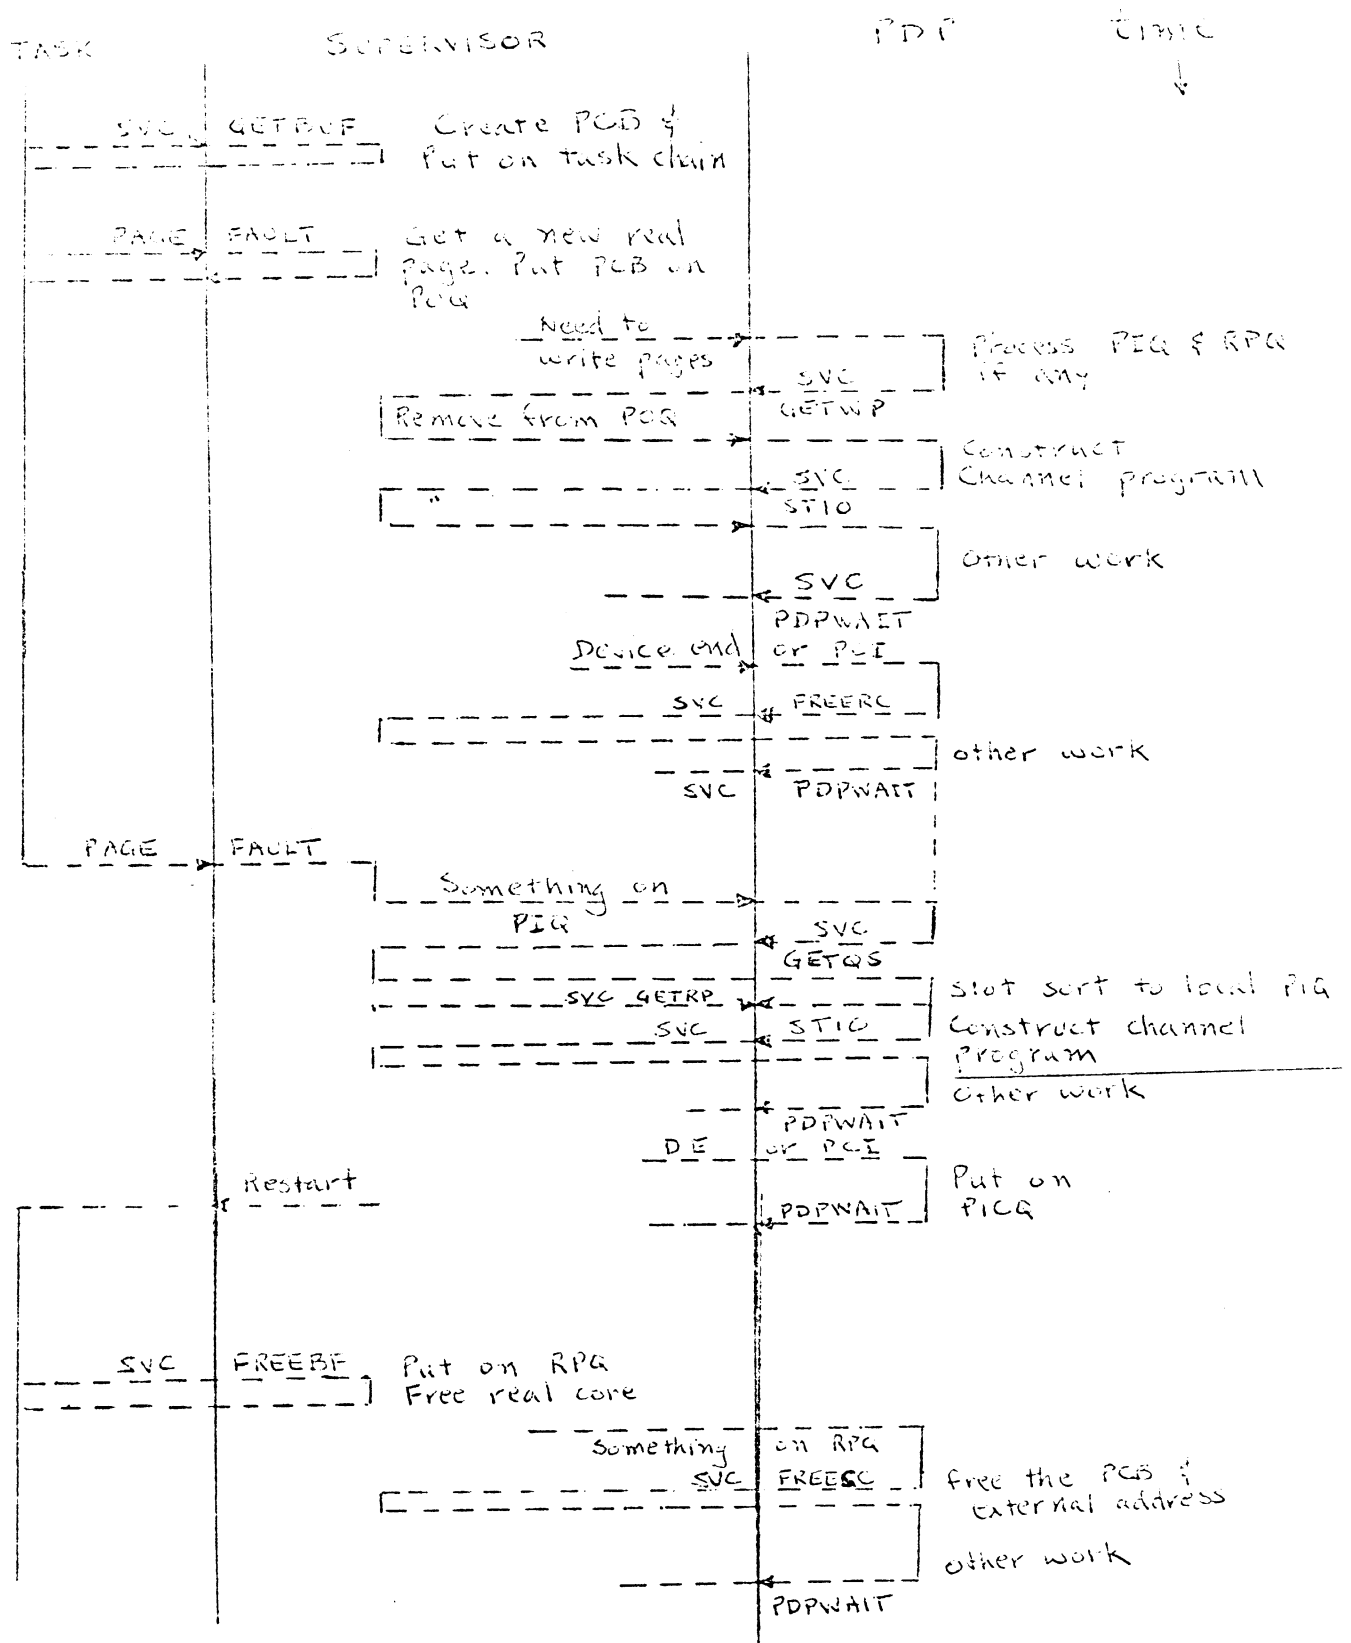 TASK SUPERVISOR PDP time
SVC GETBUF Create PCB &
Put on task chain
PAGE FAULT Get a new real
page. Put PCB on
POQ
Need to
write pages
Process PIQ & RPQ
if any
SVC
GETWP
Remove from POQ
Construct
Channel program
SVC
STIO
"
Other work
SVC
PDPWAIT
Device end or PCI
SVC FREERC
other work
SVC PDPWAIT
PAGE FAULT
Something on
PIQ
SVC
GETQS
Slot sort to local PIQ
SVC GETRP
SVC STIO Construct channel
program
Other work
PDPWAIT
DE or PCI
Restart
Put on
PICQ
PDPWAIT
SVC FREEBF Put on RPQ
Free real core
Something on RPQ
SVC FREESC free the PCB &
external address
other work
PDPWAIT